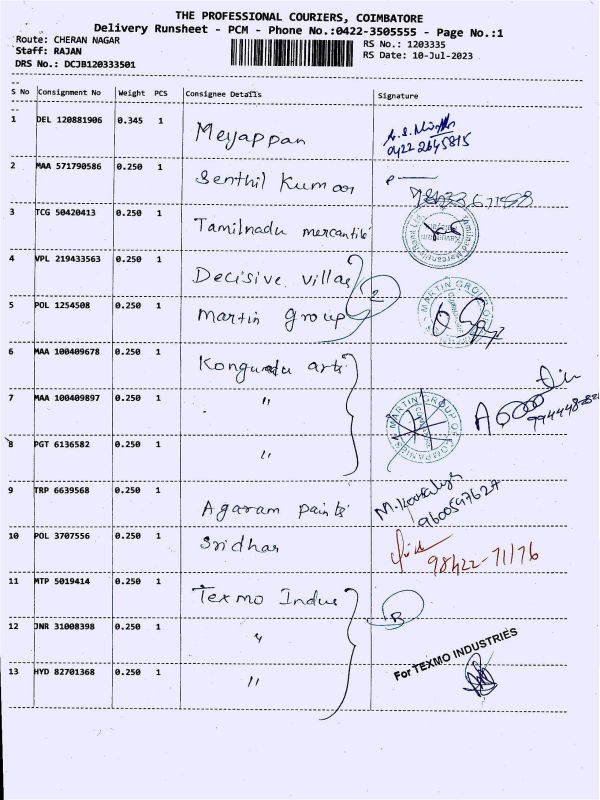 THE PROFESSIONAL COURIERS, COIMBATORE
Delivery Runsheet - PCM - Phone No.:0422-3505555 - Page No.:1
Route: CHERAN NAGAR
RS No.: 1203335
Staff: RAJAN
RS Date: 10-Jul-2023
DRS No.: DCJB120333501
S No Consignment No Weight PCS Consignee Details Signature
1 DEL 120881906 0.345 1 Meyappan
0422 2645815
2 MAA 571790586 0.250 1 Senthil Kumar
3 TCG 50420413 0.250 1 Tamilnadu mercantile
4 VPL 219433563 0.250 1 Decisive villas
2
5 POL 1254508 0.250 1 Martin Group
MARTIN GROUP OF
6 MAA 100409678 0.250 1 Kongunadu arts
7 MAA 100409897 0.250 1 "
MARTIN GROUP OF COMPANIES
8 PGT 6136582 0.250 1 "
9 TRP 6639568 0.250 1 Agaram paints
10 POL 3707556 0.250 1 Sridhar
98422-71176
11 MTP 5019414 0.250 1 Texmo Indus
12 JNR 31008398 0.250 1 "
For TEXMO INDUSTRIES
13 HYD 82701368 0.250 1 "